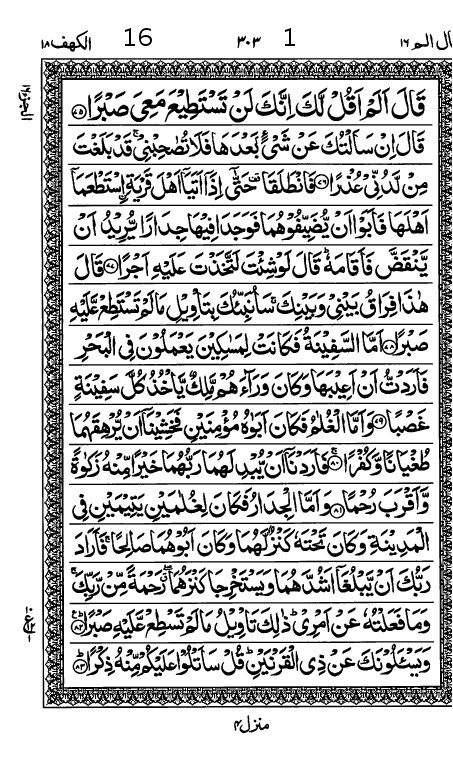 قال الم ١٦ 1 ٣٠٣ 16 الكهف ١٨
قَالَ اَلَمْ اَقُلْ لَّكَ اِنَّكَ لَنْ تَسْتَطِيْعَ مَعِيَ صَبْرًا ﴿٧٥﴾
قَالَ اِنْ سَاَلْتُكَ عَنْ شَيْءٍۭ بَعْدَهَا فَلَا تُصٰحِبْنِيْ ۚ قَدْ بَلَغْتَ
مِنْ لَّدُنِّيْ عُذْرًا ﴿٧٦﴾ فَانْطَلَقَا ۥ حَتّٰۤى اِذَاۤ اَتَيَاۤ اَهْلَ قَرْيَةِ ۨاسْتَطْعَمَاۤ
اَهْلَهَا فَاَبَوْا اَنْ يُّضَيِّفُوْهُمَا فَوَجَدَا فِيْهَا جِدَارًا يُّرِيْدُ اَنْ
يَّنْقَضَّ فَاَقَامَهٗ ؕ قَالَ لَوْ شِئْتَ لَتَّخَذْتَ عَلَيْهِ اَجْرًا ﴿٧٧﴾ قَالَ
هٰذَا فِرَاقُ بَيْنِيْ وَبَيْنِكَ ۚ سَاُنَبِّئُكَ بِتَاْوِيْلِ مَا لَمْ تَسْتَطِعْ عَّلَيْهِ
صَبْرًا ﴿٧٨﴾ اَمَّا السَّفِيْنَةُ فَكَانَتْ لِمَسٰكِيْنَ يَعْمَلُوْنَ فِي الْبَحْرِ
فَاَرَدْتُّ اَنْ اَعِيْبَهَا وَكَانَ وَرَآءَهُمْ مَّلِكٌ يَّاْخُذُ كُلَّ سَفِيْنَةٍ
غَصْبًا ﴿٧٩﴾ وَاَمَّا الْغُلٰمُ فَكَانَ اَبَوٰهُ مُؤْمِنَيْنِ فَخَشِيْنَاۤ اَنْ يُّرْهِقَهُمَا
طُغْيَانًا وَّكُفْرًا ﴿٨٠﴾ فَاَرَدْنَاۤ اَنْ يُّبْدِلَهُمَا رَبُّهُمَا خَيْرًا مِّنْهُ زَكٰوةً
وَّاَقْرَبَ رُحْمًا ﴿٨١﴾ وَاَمَّا الْجِدَارُ فَكَانَ لِغُلٰمَيْنِ يَتِيْمَيْنِ فِي
الْمَدِيْنَةِ وَكَانَ تَحْتَهٗ كَنْزٌ لَّهُمَا وَكَانَ اَبُوْهُمَا صَالِحًا ۚ فَاَرَادَ
رَبُّكَ اَنْ يَّبْلُغَاۤ اَشُدَّهُمَا وَيَسْتَخْرِجَا كَنْزَهُمَا ۖ رَحْمَةً مِّنْ رَّبِّكَ ۚ
وَمَا فَعَلْتُهٗ عَنْ اَمْرِيْ ؕ ذٰلِكَ تَاْوِيْلُ مَا لَمْ تَسْطِعْ عَّلَيْهِ صَبْرًا ﴿٨٢﴾
وَيَسْـَٔلُوْنَكَ عَنْ ذِي الْقَرْنَيْنِ ؕ قُلْ سَاَتْلُوْا عَلَيْكُمْ مِّنْهُ ذِكْرًا ﴿٨٣﴾
منزل ٤